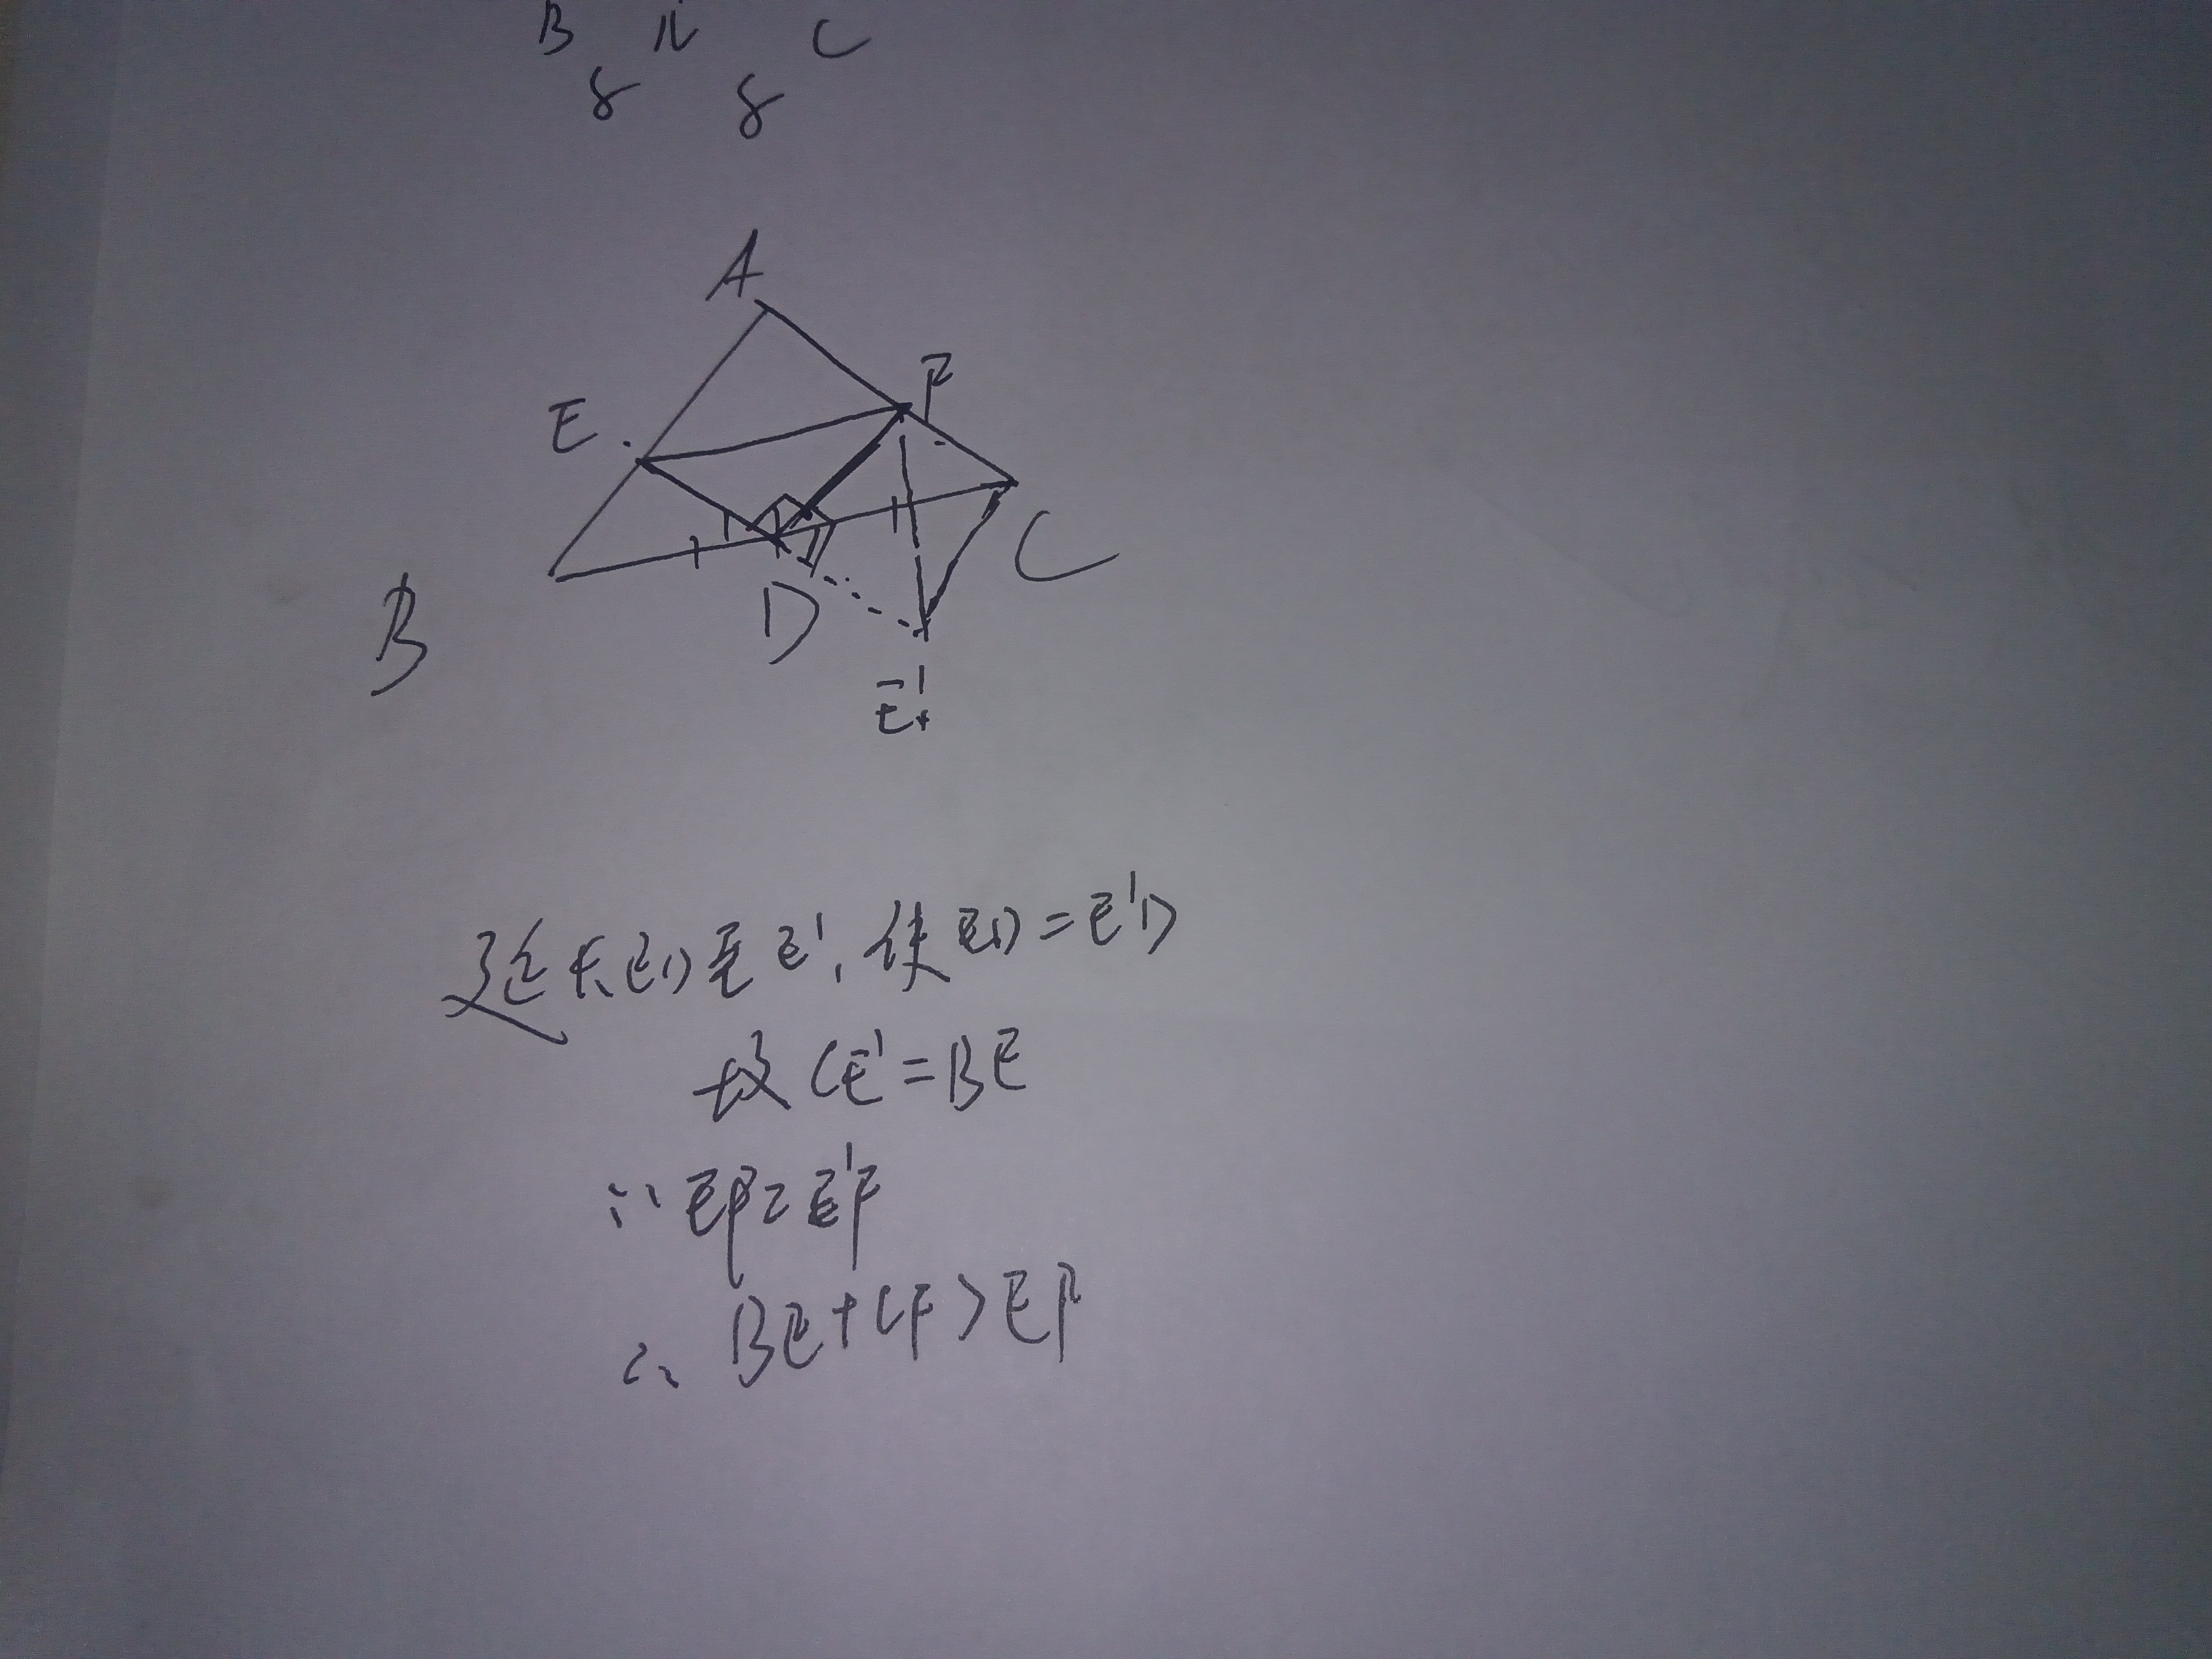 B N C
8 8
A
F
E
C
B
D
E'
延长ED至E', 使ED=E'D
故CE'=BE
∵ EF=E'F
∴ BE+CF>EF